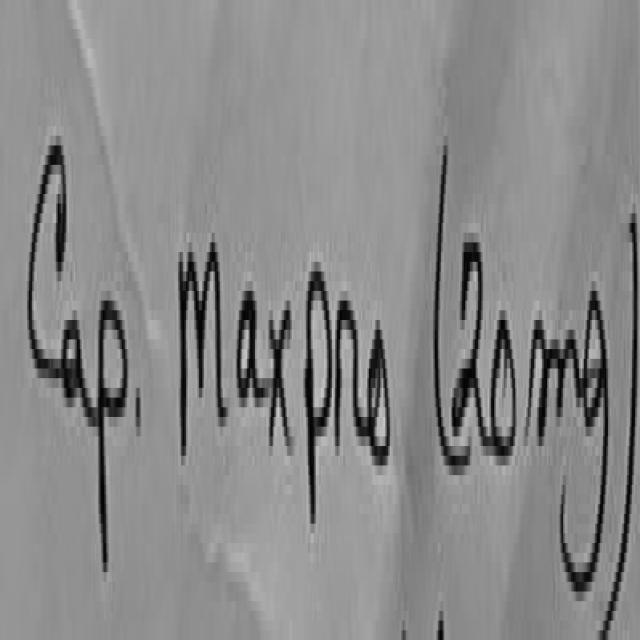 Cap. Maxpro (20mg)